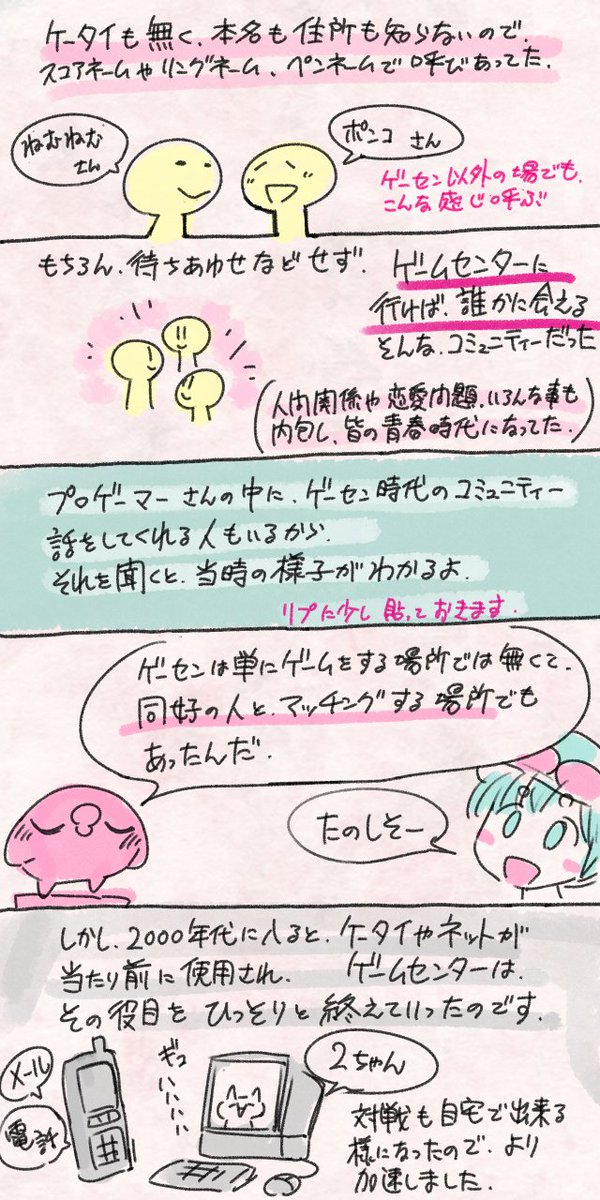 ケータイも無く、本名も住所も知らないので、
スコアネームやリングネーム、ペンネームで呼びあってた。
ねむねむ
さん
ポンコ さん
ゲーセン以外の場でも、
こんな感じ呼ぶ
もちろん、待ちあわせなどせず、
ゲームセンターに
行けば、誰かに会える
そんな、コミュニティーだった
(人間関係や恋愛問題、いろんな事も
内包し、皆の青春時代になってた。)
プロゲーマーさんの中に、ゲーセン時代のコミュニティー
話をしてくれる人もいるから、
それを聞くと、当時の様子がわかるよ。
リプに少し貼っておきます。
ゲーセンは単にゲームをする場所では無くて、
同好の人と、マッチングする場所でも
あったんだ。
たのしそー
しかし、2000年代に入ると、ケータイやネットが
当たり前に使用され、 ゲームセンターは、
その役目をひっそりと終えていったのです。
メール
電話
ギコ
いいいい
2ちゃん
対戦も自宅で出来る
様になったので、より
加速しました。